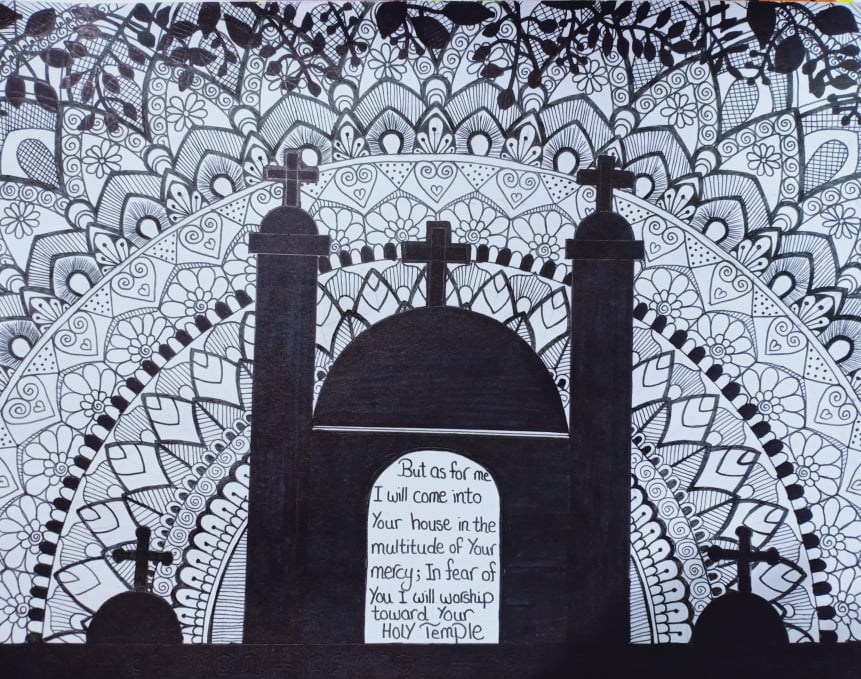 But as for me
I will come into
Your house in the
multitude of Your
mercy; In fear of
You I will worship
toward Your
HOLY Temple